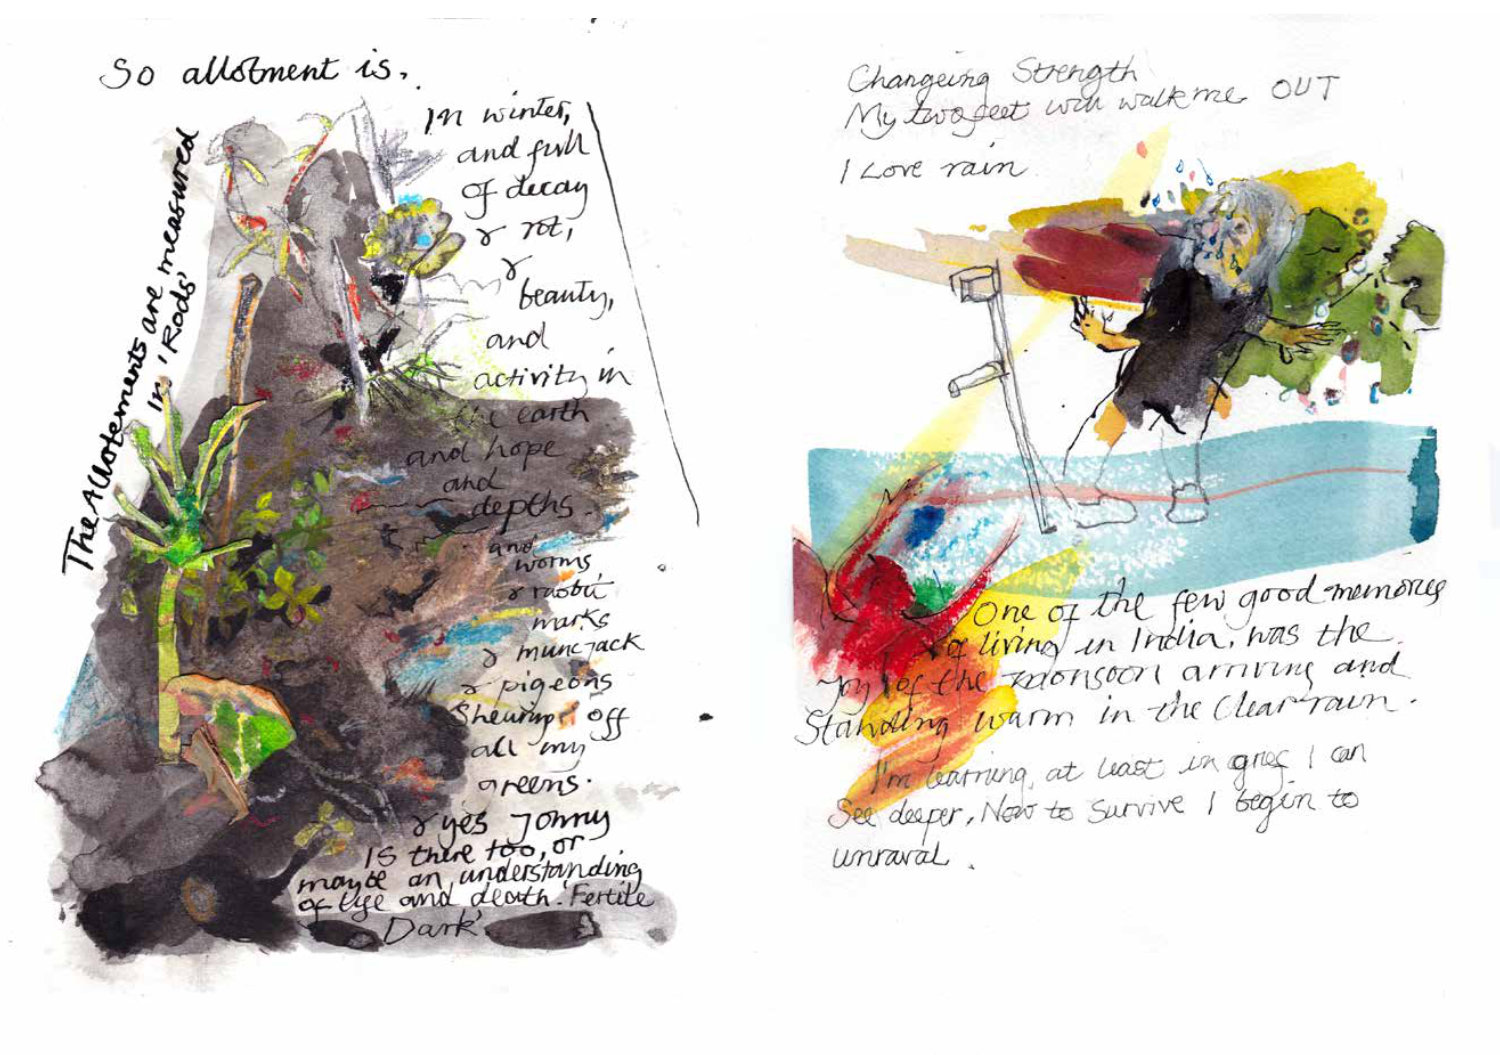 So allotment is.
The Allotements are measured
in 'Rods'
In winter,
and full
of decay
& rot,
&
beauty,
and
activity in
the earth
and hope
and
depths.
and
worms
& rabbit
marks
& muncjack
& pigeons
off
all my
greens.
& yes Jonny
IS there too, or
maybe an understanding
of life and death. 'Fertile
Dark'.
Changeing Strength
My two feet will walk me OUT
I Love rain
One of the few good memories
of living in India, was the
Joy of the monsoon arriving and
Standing warm in the Clear rain.
I'm learning, at least in grief I can
See deeper, Now to Survive I begin to
unraval.